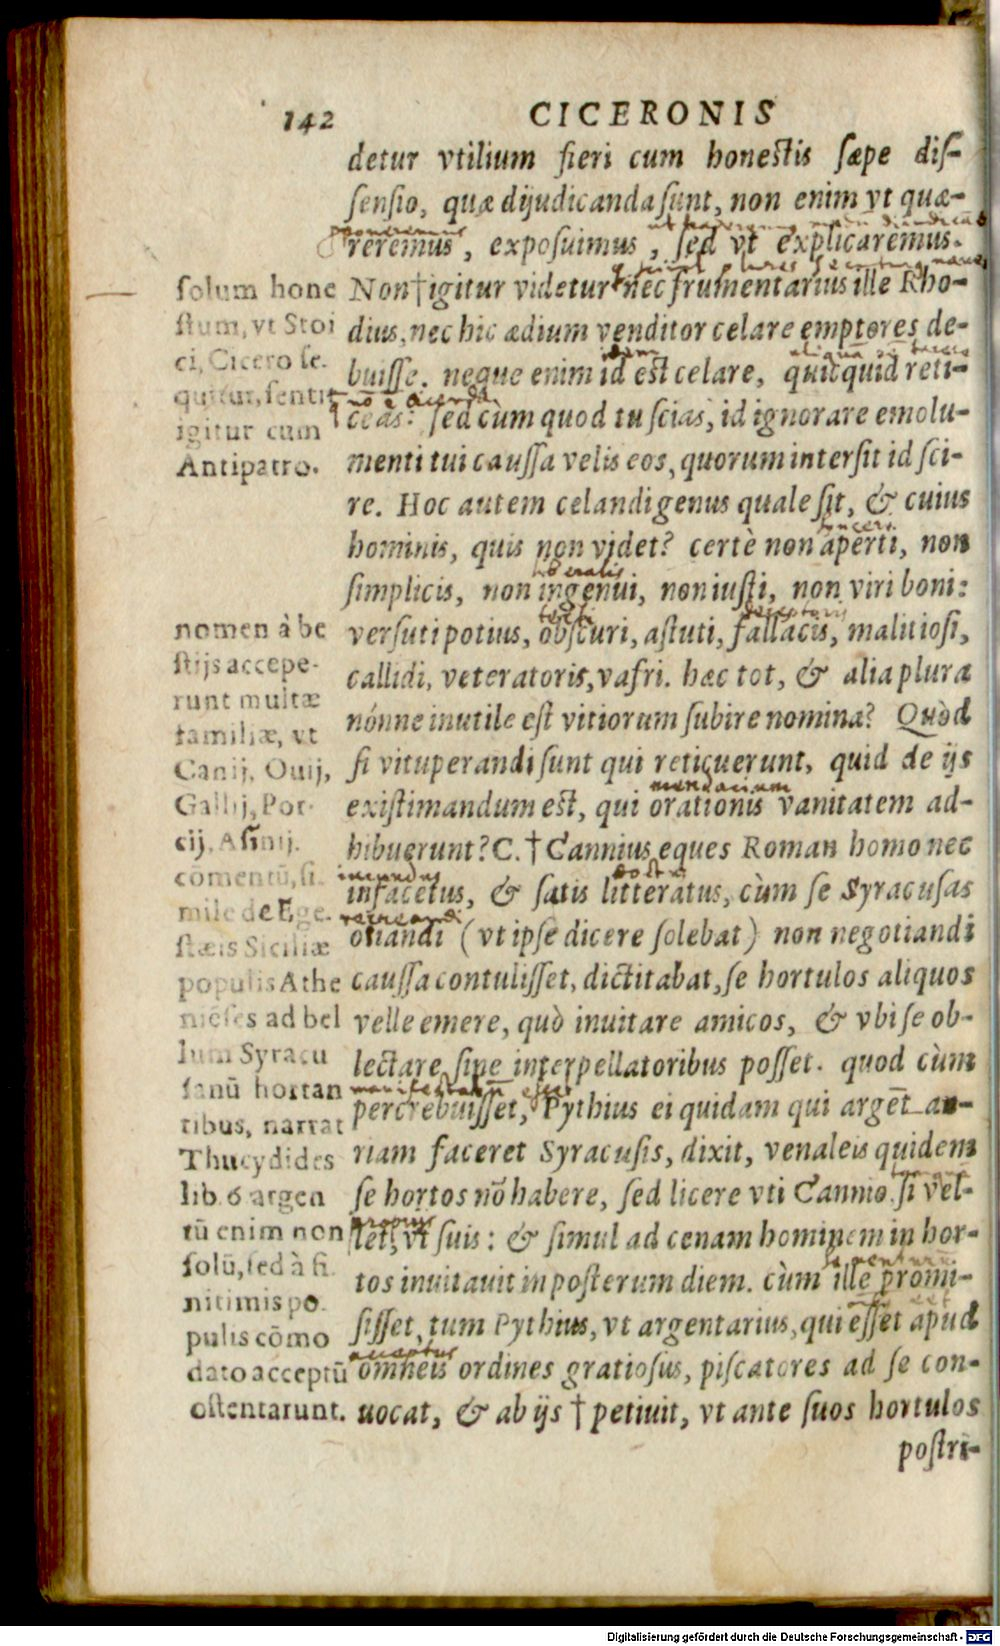 142
CICERONIS
detur vtilium fieri cum honestis sæpe dis-
sensio, quæ dijudicanda sunt, non enim vt quæ-
reremus, exposuimus, sed vt explicaremus.
Non†igitur videtur nec frumentarius ille Rho-
dius, nec hic ædium venditor celare emptores de-
buisse. neque enim id est celare, quicquid reti-
ceas: sed cum quod tu scias, id ignorare emolu-
menti tui caussa velis eos, quorum intersit id sci-
re. Hoc autem celandi genus quale sit, & cuius
hominis, quis non videt? certè non aperti, non
simplicis, non ingenui, non iusti, non viri boni:
versuti potius, obscuri, astuti, fallacis, malitiosi,
callidi, veteratoris, vafri. hæc tot, & alia plura
nónne inutile est vitiorum subire nomina? Quòd
si vituperandi sunt qui reticuerunt, quid de ijs
existimandum est, qui orationis vanitatem ad-
hibuerunt? C. † Cannius eques Roman homo nec
infacetus, & satis litteratus, cùm se Syracusas
otiandi (vt ipse dicere solebat) non negotiandi
caussa contulisset, dictitabat, se hortulos aliquos
velle emere, quò inuitare amicos, & vbi se ob-
lectare sine interpellatoribus posset. quod cùm
percrebuisset, Pythius ei quidam qui argēt an-
riam faceret Syracusis, dixit, venaleis quidem
se hortos nō habere, sed licere vti Cannio si vel-
let, vt suis: & simul ad cenam hominem in hor-
tos inuitauit in posterum diem. cùm ille promi-
sisset, tum Pythius, vt argentarius, qui esset apud
omneis ordines gratiosus, piscatores ad se con-
uocat, & ab ijs † petiuit, vt ante suos hortulos
postri-
solum hone
stum, vt Stoi
ci, Cicero se.
quitur, sentit
igitur cum
Antipatro.
nomen à be
stijs accepe-
runt multæ
familiæ, vt
Canij, Ouij,
Gallij, Por-
cij, Asinij.
cōmentū, si.
mile de Ege.
stæis Siciliæ
populis Athe
niēses ad bel
lum Syracu
sanū hortan
tibus, narrat
Thucydides
lib. 6 argen
tū enim non
solū, sed à fi.
nitimis po.
pulis cōmo
dato acceptū
ostentarunt.
Digitalisierung gefördert durch die Deutsche Forschungsgemeinschaft - DFG